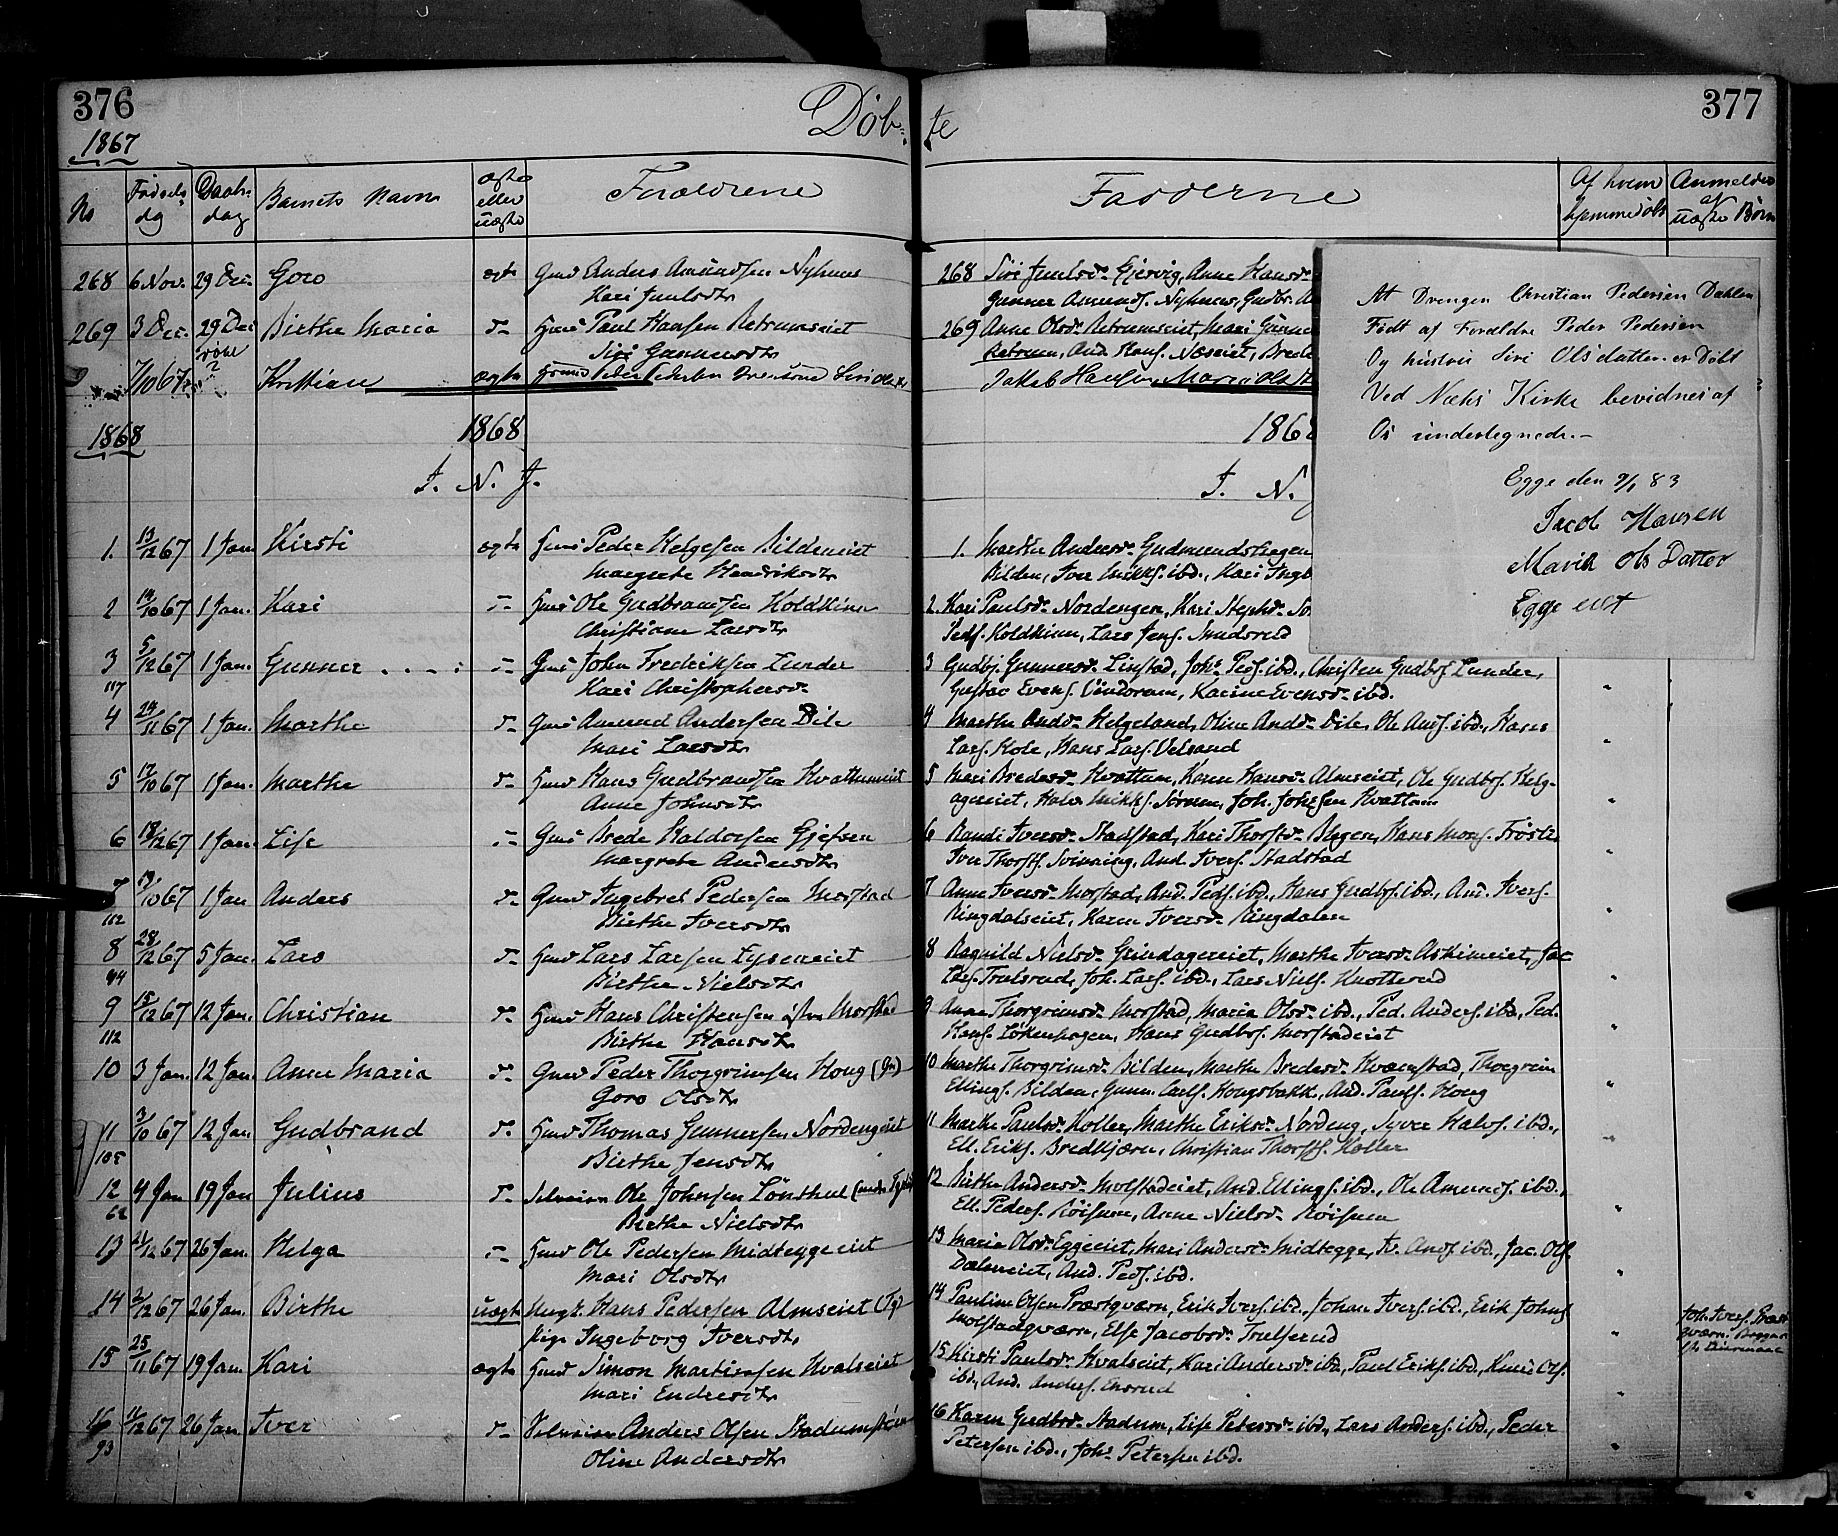 376
1867
Døb-
No
Fødsels
dg
Daabs
dag
Barnets Navn
ægte
eller
uægte
Forældrene
268 6 Nov. 29 Dec. Goro ægte Gmd Anders Amundsen Nyhuus
Kari Juulsdtr
269 3 Dec. 29 Dec Birthe Maria d- Hmd Paul Hansen Retrumseiet
Siri Gunnersdtr
7/10 67 ? Kristian ægte Hmand Peder Pedersen Siri Olsdtr
1868 1868
I. N. J.
1. 13/12 67 1 Jan Kirsti ægte Hmd Peder Helgesen Bildeneiet
Margrethe Hendriksdtr
2 14/10 67 1 Jan. Kari d- Hmd Ole Gudbrandsen Koldkinn
Christiane Larsdtr
3 5/12 67 1 Jan. Gunner d- Gmd John Fredriksen Lunder
117 Kari Christophersd-
4 29/11 67 1 Jan. Marthe d- Gmd Amund Andersen Bile
Mari Larsdtr
5 17/10 67 1 Jan. Marthe d- Hmd Hans Gudbrandsen Kvattumeiet
Anne Johnsdtr
6 18/12 67 1 Jan. Lise d- Gmd Brede Haldorsen Gjefsen
Margrete Andersdtr
7 19/10 67 1 Jan Anders d- Gmd Ingebret Pedersen Morstad
112 Birthe Iversdtr
8 28/12 67 5 Jan. Lars d- Hmd Lars Larsen Lyseneiet
44 Birthe Nielsdtr
9 15/12 67 12 Jan. Christian d- Hmd Hans Christensen østre Morstad
112 Birthe Hansdtr
10 3 Jan. 12 Jan. Anne Maria d- Gmd Peder Thorgrimsen Houg (Gr)
Goro Olsdtr
11 3/10 67 12 Jan. Gudbrand d- Hmd Thomas Gunnersen Nordengeiet
105 Birthe Jensdtr
12 4 Jan 19 Jan Julius d- Selveier Ole Johnsen Lønsthul
62 Birthe Nielsdtr
13 21/12 67 26 Jan. Helga d- Hmd Ole Pedersen Midteggeeiet
Mari Olsdtr
14 2/12 67 26 Jan. Birthe uægte Ungk. Hans Pedersen Almseiet
Pige Ingeborg Iversdtr
15 25/11 67 19 Jan. Kari ægte Hmd Simon Martinsen Hvalseiet
Mari Endresdtr
16 11/12 67 26 Jan Iver d- Selveier Anders Olsen
93 Oline Andersdtr
377
te
Fadderne
Af hvem
hjemmedøbt
Anmelder
af
uægte Børn
268 Siri Juulsd- Gjervig, Anne Hansd-
Gunner Amunds. Nyhuus, Gudbr.
269 Anne Olsd- Retrumseiet, Mari Gunne
Retrum, And. Hans. Næseiet, Brede
Jakob Hansen, Maria Ols
186
I. N.
1. Marthe Andersd- Gudmundshagen
Bilden, Iver Mikkels. ibd., Kari Ingb
2. Kari Paulsd- Nordengen, Kari Stephsd-
Peds. Koldkinn, Lars Jens. Smedsrud
3 Gudbj. Gunnersd- Linstad, Joh. Peds. ibd., Christen Gudbs. Lunder,
Gustav Evens. Vindoren, Karine Evensd- ibd.
4 Marthe Andd- Helgeland, Oline Andd- Bile, Ole Ands. ibd., Hans
Lars. Kole, Hans Lars. Velsand
5 Mari Bredesd- Kvattum, Karen Hansd- Almseiet, Ole Gudbs. Helg-
ageneiet, Halv. Mikkels. Sørum, Joh. Johnsen Kvattum
6 Randi Iversd- Stadstad, Kari Thorstd- Blegen, Hans Mons. Trøste
Iver Thorsts. Svinning, And. Ivers. Stadstad
7 Anne Iversd- Morstad, And. Peds. ibd., Hans Gudbs. ibd., And. Ivers.
Ringdalseiet, Karen Iversd- Ringdalen
8 Ragnild Nielsd- Grindageneiet, Marthe Iversd- Askimeiet, Jac
Lars. Trulsrud, Joh. Lars. ibd., Lars Niels. Knotterud
9 Anne Thorgrimsd- Morstad, Maria Olsd- ibd., Ped. Anders. ibd., Ped.
Hans. Løkenhagen, Hans Gudbs. Morstadeiet
10 Marthe Thorgrimsd- Bilden, Marthe Bredesd- Kvernstad, Thorgrim
Ellings. Bilden, Gunn. Carls. Hougsbakk, And. Pauls. Houg
11 Marthe Paulsd- Koller, Marthe Eriksd- Nordeng, Syver Halvs. ibd.,
Ell. Eriks. Bredkjærn, Christian Thorsts. Koller
12 Birthe Andersd- Molstadeiet, And. Ellings. ibd., Ole Amunds. ibd.,
Ell. Peders. Røisum, Anne Nielsd- Røisum
13 Maria Olsd- Eggeeiet, Mari Andersd- Midtegge, Iv. Ands. ibd., Jac. Ols.
Dæhneiet, And. Peds. ibd.
14 Pauline Olsen Præstqværn, Erik Ivers. ibd., Johan Ivers. ibd., Erik Johns.
Molstadqværn, Else Jacobsd- Trulserud
Joh. Ivers. Præst
qværn
15 Kirsti Paulsd- Hvalseiet, Kari Andersd- ibd., Paul Eriks. ibd., Knud Ols.
ibd., And. Anders. Ensrud
16 Karen Gudbsd- Stadum, Lise Petersd- ibd., Lars Anders. ibd., Peder
Petersen ibd., Joh. Petersen ibd.
At Drengen Christian Pedersen Dahlen
Født af Foreldre Peder Pedersen
Og hustru Siri Olsdatter er Døbt
Ved Næhs Kirke bevidnes af
Os undertegnede.-
Egge den 9/1 83
Jacob Hansen
Maria Ols Datter
Egge eiet